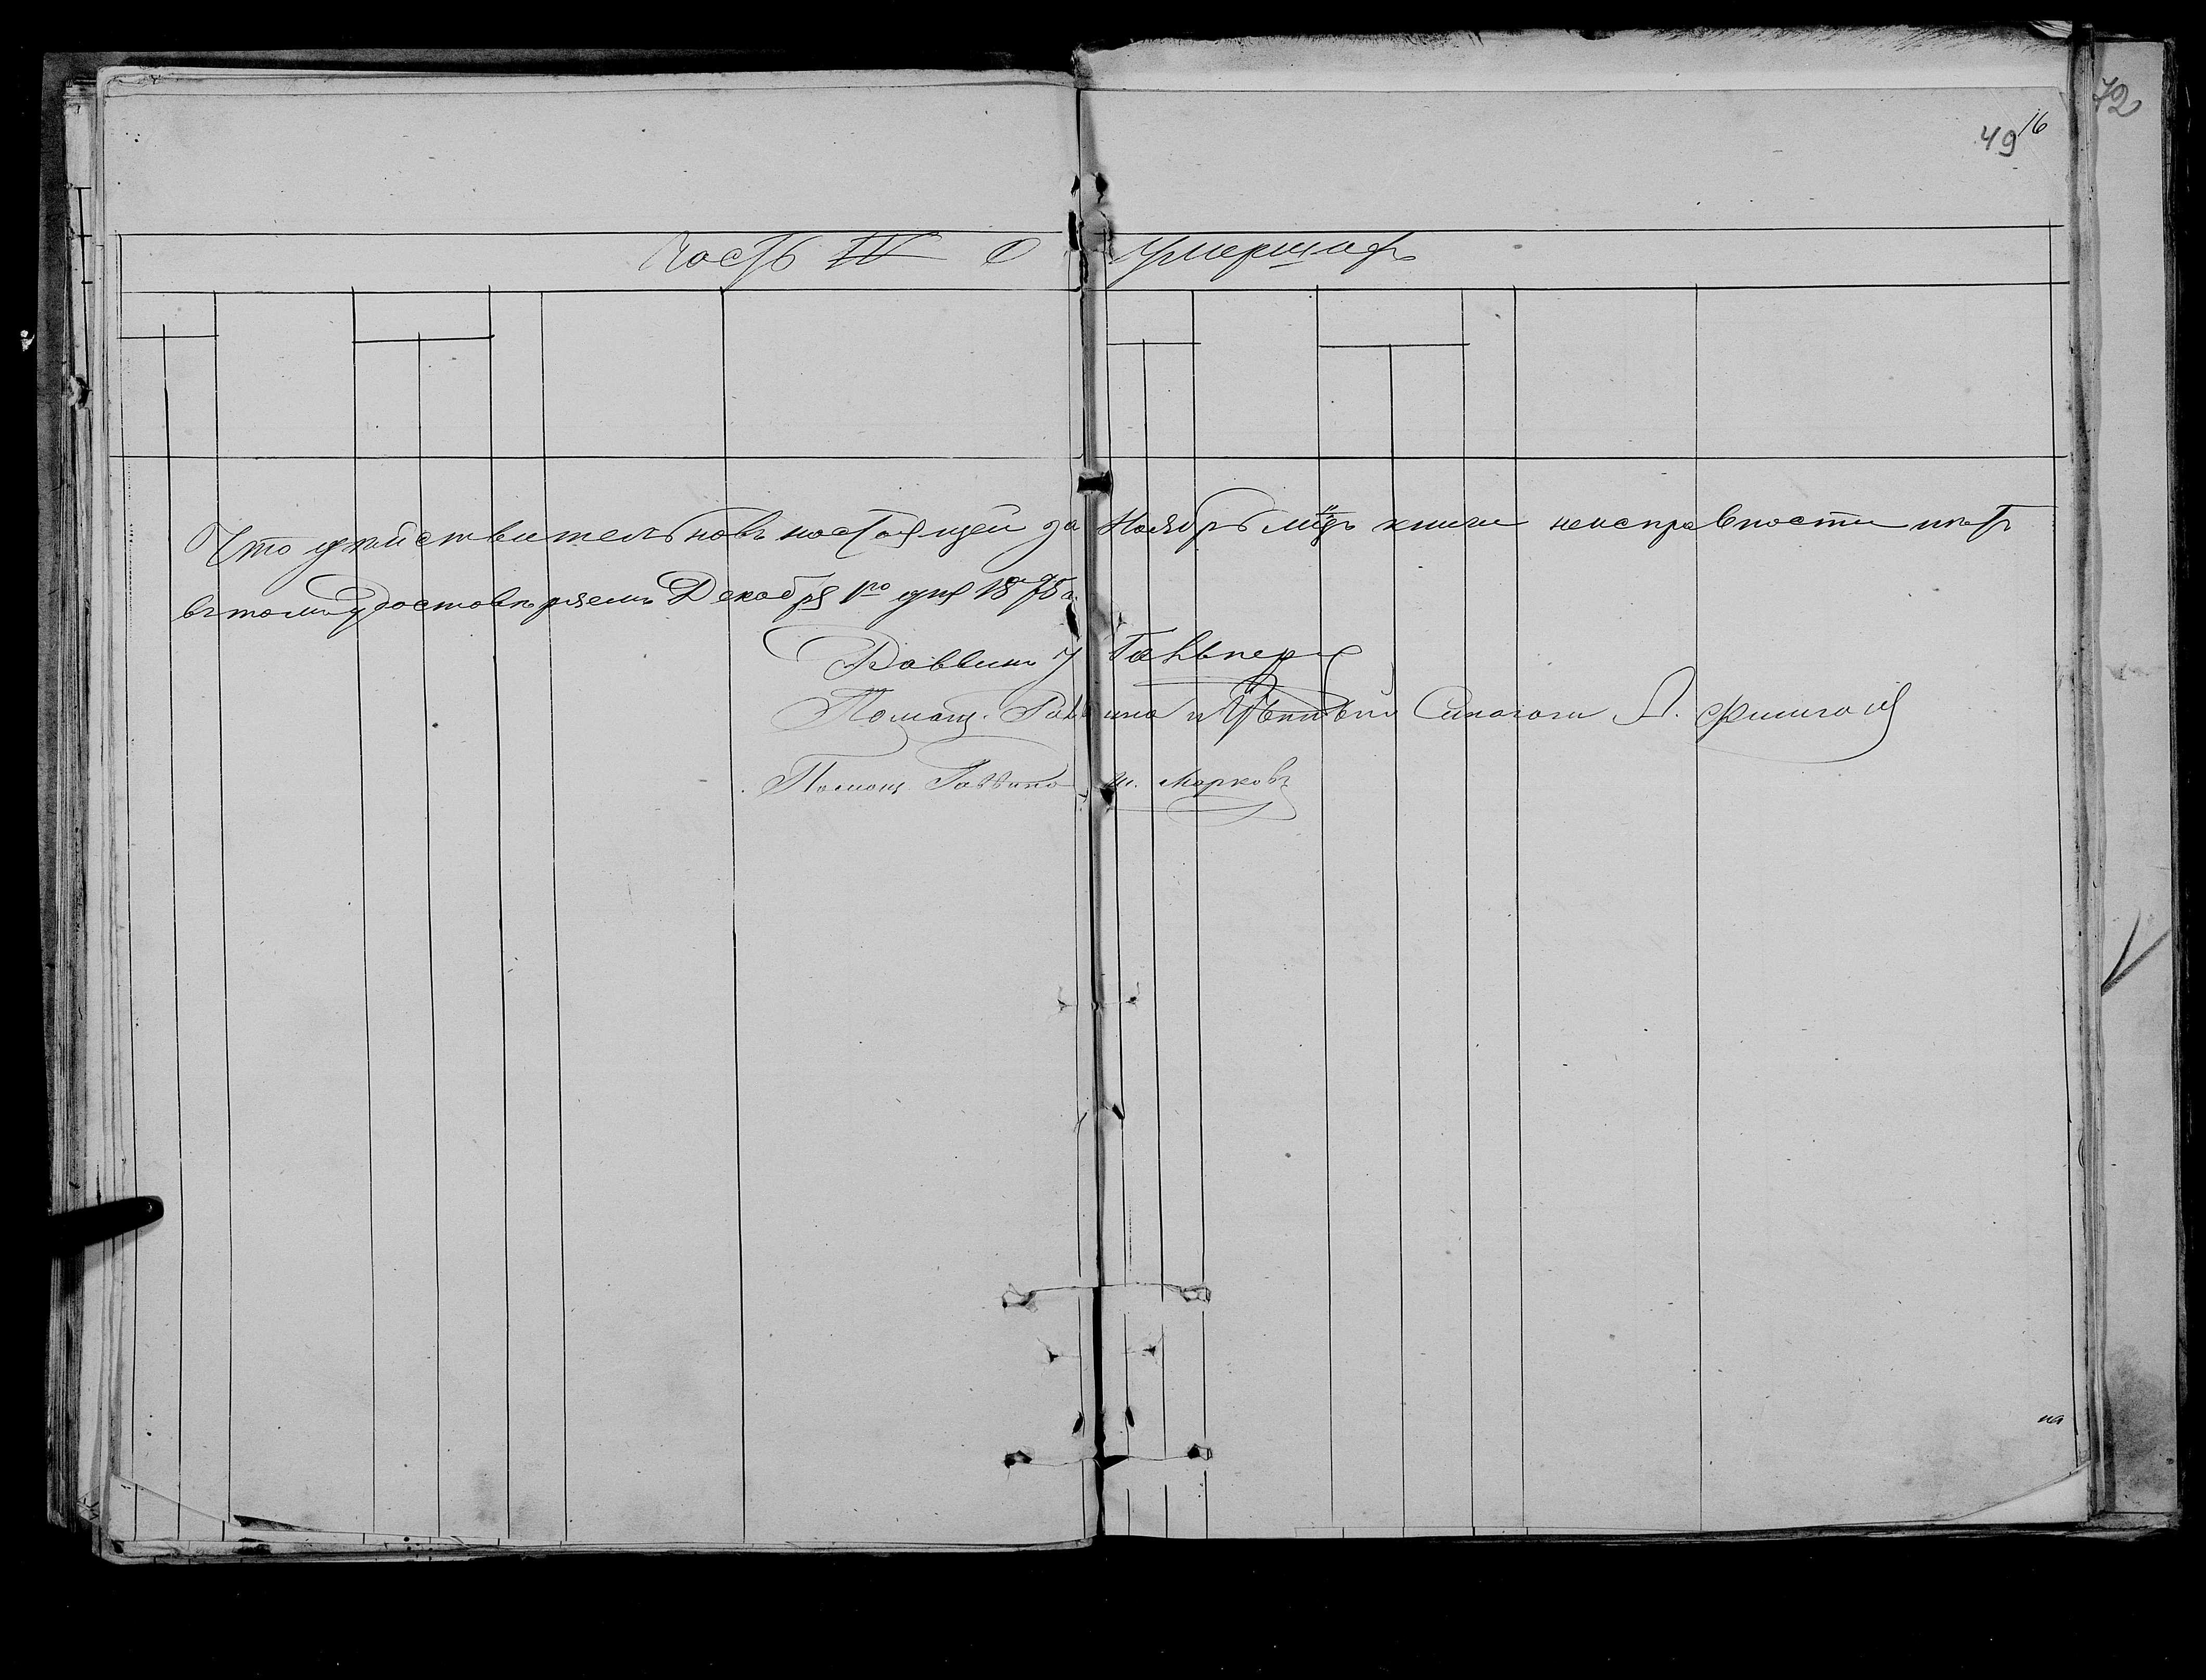 72
49 16
Часть IV О умершихъ
Что действительновъ настоящей за Ноябрь мцъ книги неисправности нетъ
въ томъ удостоверяемъ Декабря 1го дня 1875 г.
Раввинъ
Помощ. Раввина и Синагоги А.
Помощ Раввина Ш. Марковъ
на